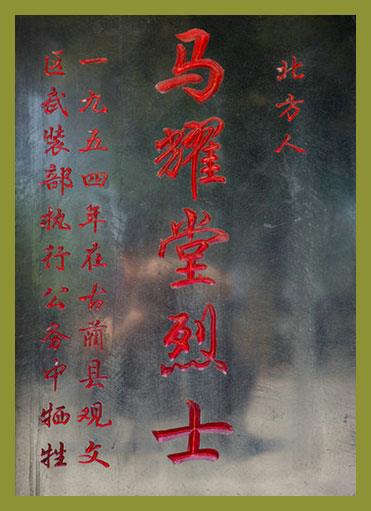 北方人
马耀堂烈士
一九五四年在古蔺县观文
区武装部执行公务中牺牲